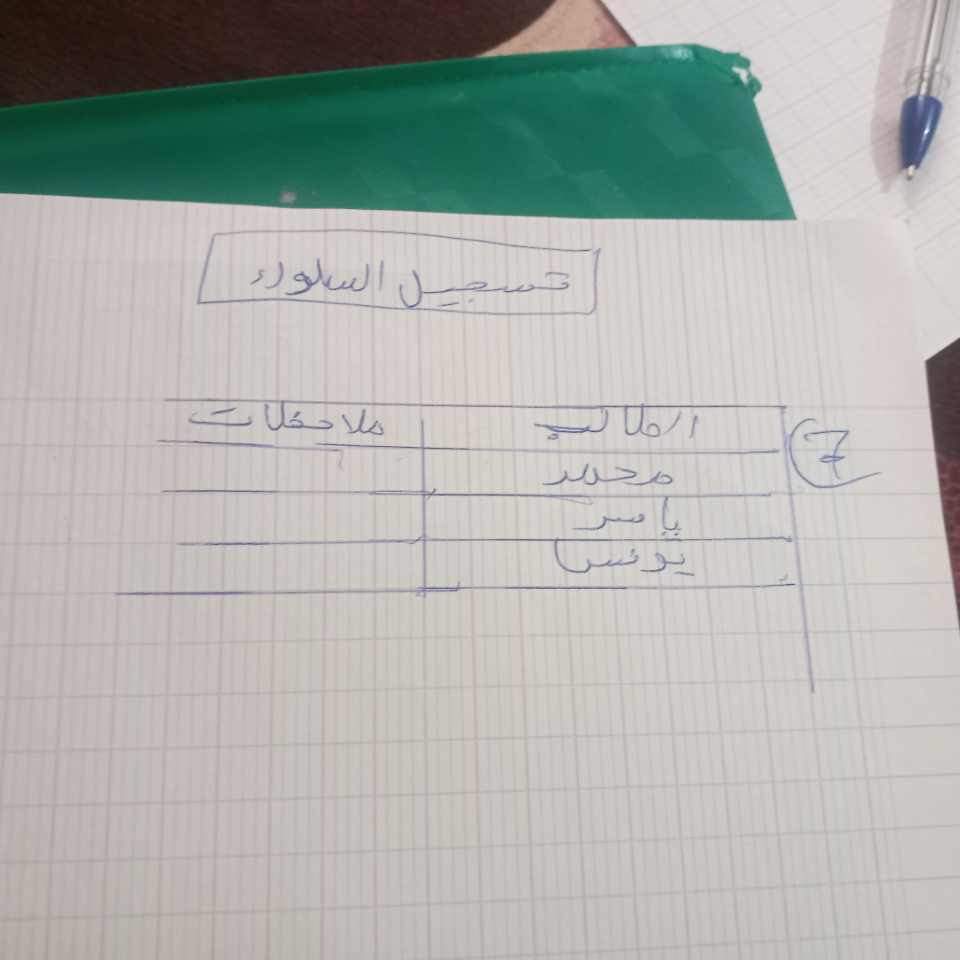 تسجيل السلوك
7
الطالب ملاحظات
محمد
ياسر
يونس